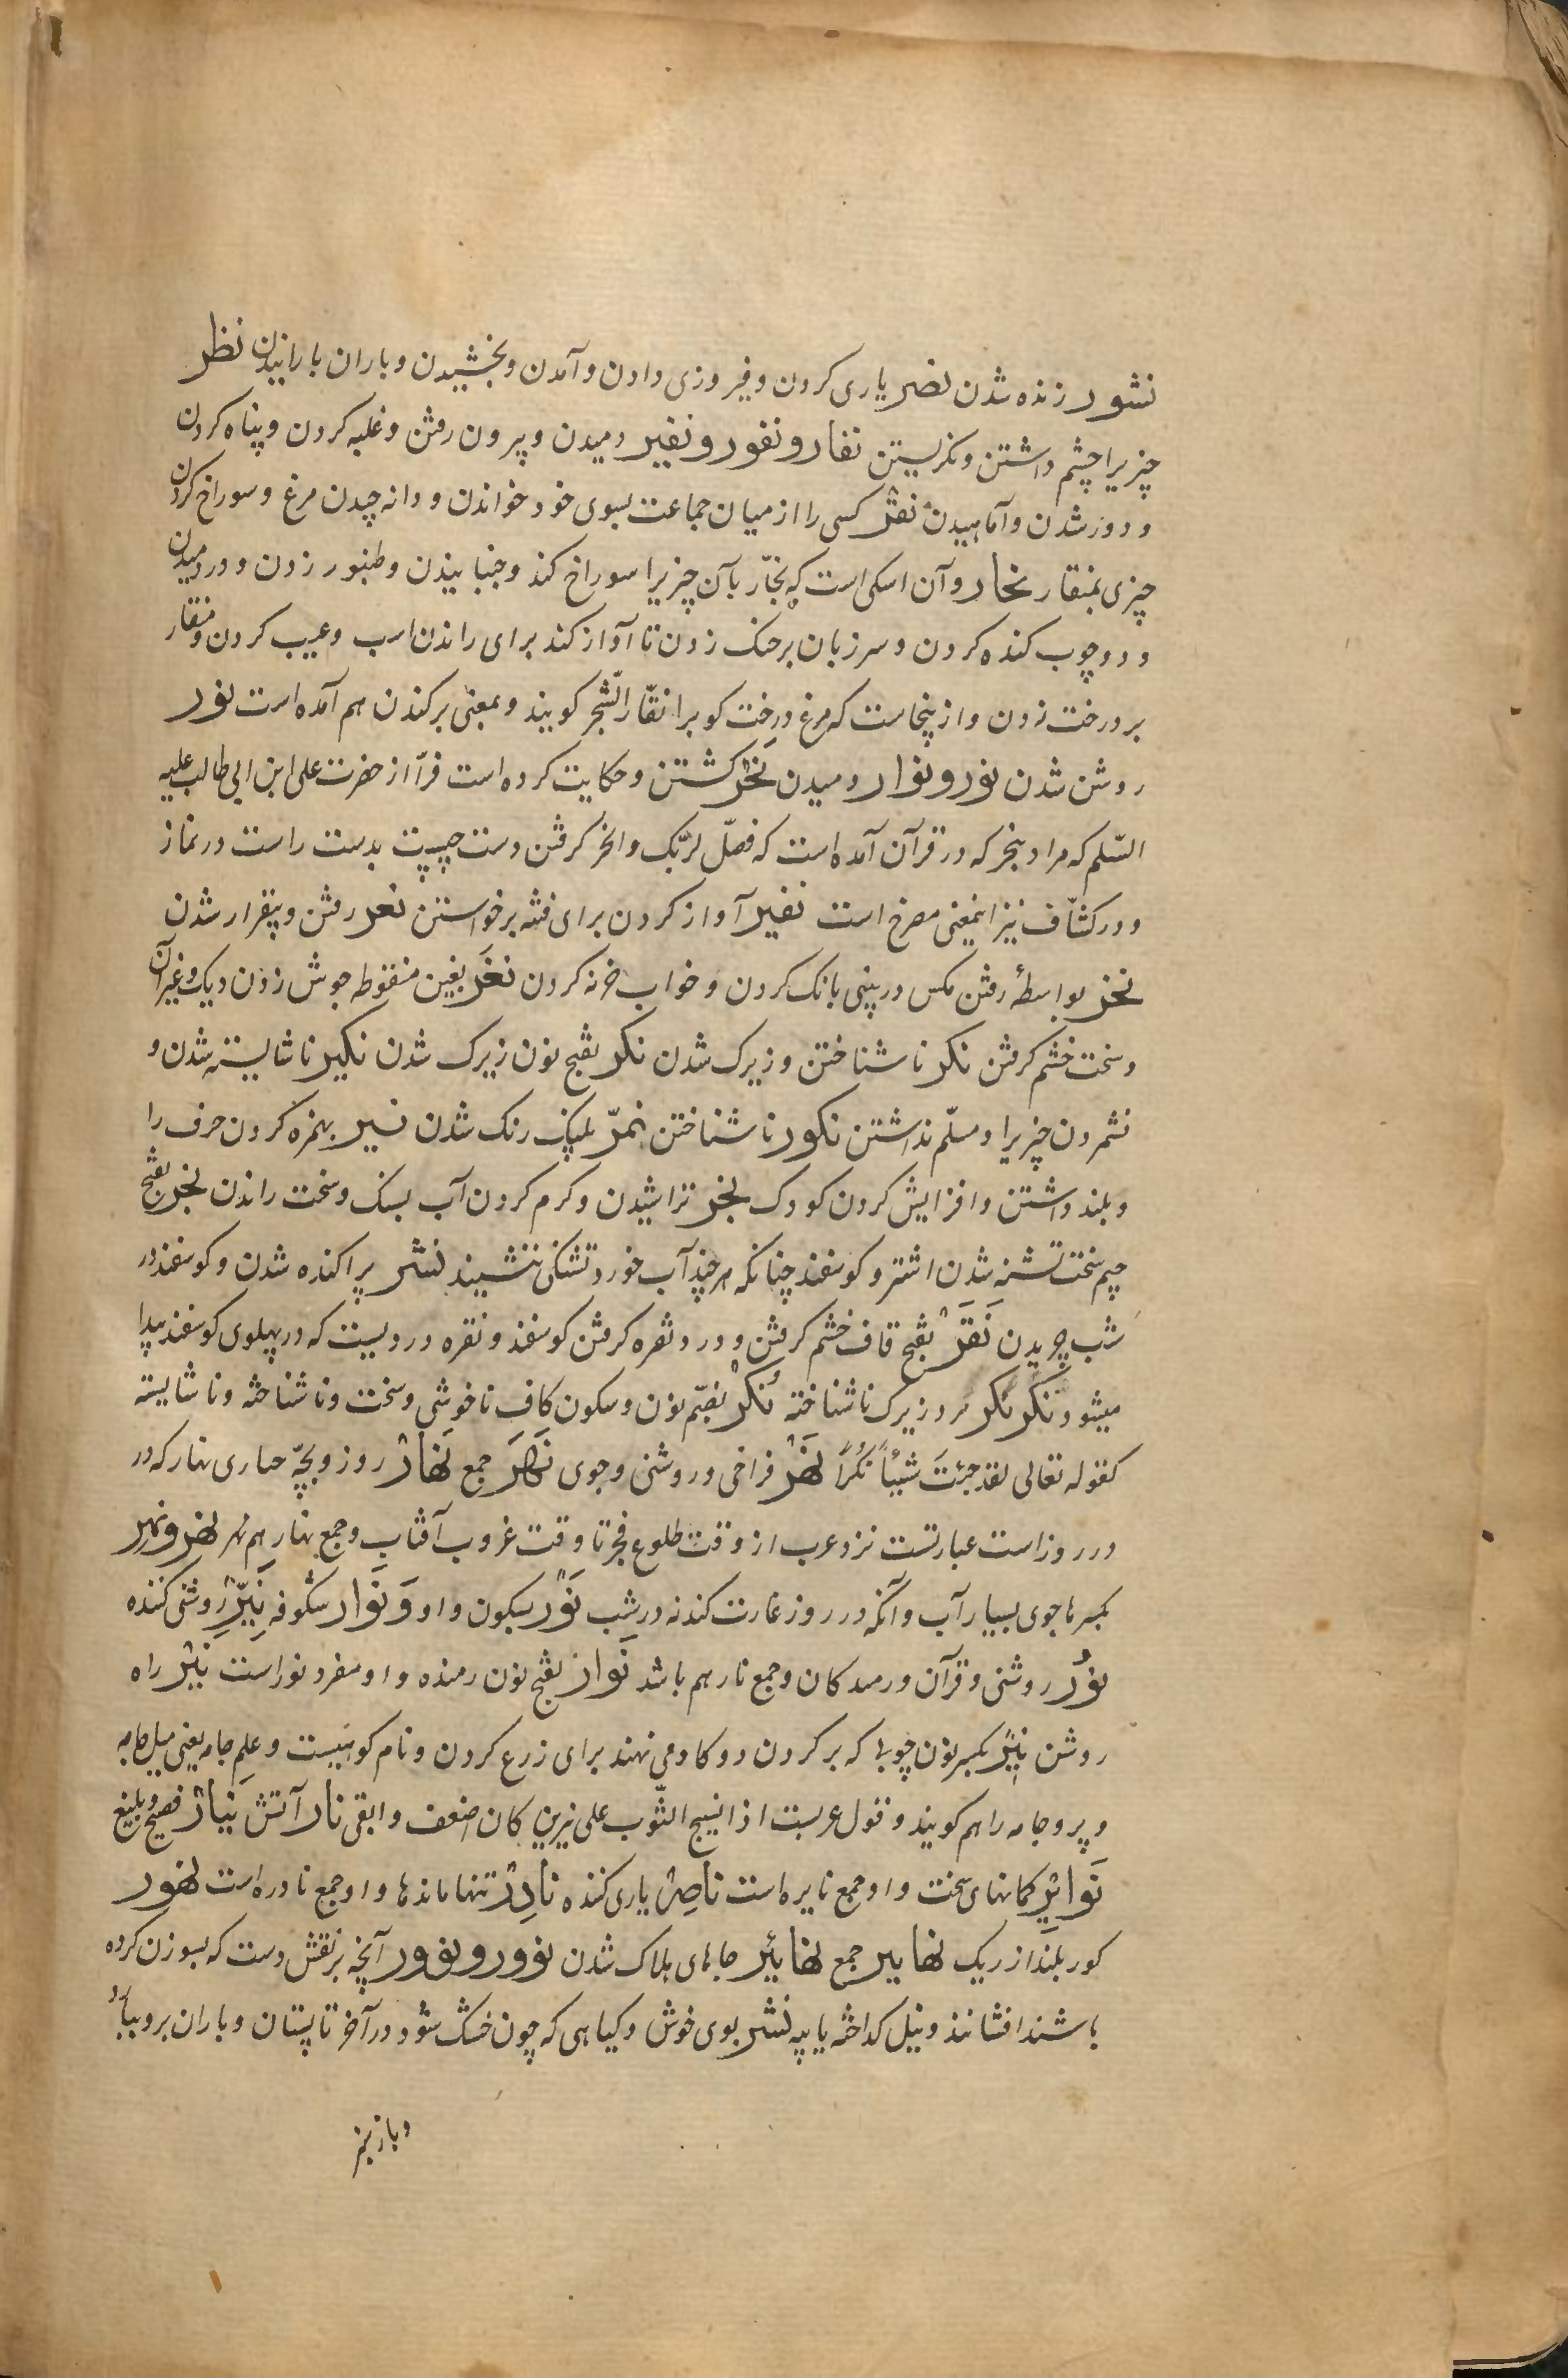 نشور زنده شدن نصر یاری کردن و فیروزی دادن و آمدن و بخشیدن و باران بارانیدن نظر
چیزیرا چشم داشتن و نکریستن نفار و نفور و نفیر رمیدن و بیرون رفتن و غلبه کردن و پناه کردن
و دور شدن و آماهیدن نقر کسی را از میان جماعت بسوی خود خواندن و دانه چیدن مرغ و سوراخ کردن
چیزی بمنقار نجار و آن اسکی است که نجّار بآن چیزیرا سوراخ کند و جنبانیدن و طنبور زدن و در دمیدن
و در چوب کنده کردن و سر زبان بر حنک زدن تا آواز کند برای راندن اسب و عیب کردن و منقار
بر درخت زدن و از ینجاست که مرغ درخت کوبرا نقّار الشّجر کویند و بمعنی برکندن هم آمده است نور
روشن شدن نور و نوار رمیدن نَحْر کشتن و حکایت کرده است فرّا از حضرت علی ابن ابی طالب علیه
السّلم که مراد بنحر که در قرآن آمده است که فصلّ لربّک وانحر کرفتن دست چپ بدست راست در نماز
و در کشّاف نیز اینمعنی مصرح است نفیر آواز کردن برای فتنه برخواستن نعر رفتن و بیقرار شدن
نخر بواسطهٔ رفتن مکس در بینی بانک کردن و خواب خرنه کردن نَغَر بغین منقوطه جوش زدن دیک و غیر آن
و سخت خشم کرفتن نکر ناشناختن و زیرک شدن نکر بفتح نون زیرک شدن نکیر ناشایسته شدن و
نشمردن چیزیرا و مسلّم نداشتن نکور ناشناختن نمر پلنک رنک شدن نبر بهمزه کردن حرف را
و بلند داشتن و افزایش کردن کودک نجر تراشیدن و کرم کردن آب بسنک و سخت راندن نجر بفتح
جیم سخت تشنه شدن اشتر و کوسفند چنانکه هر چند آب خورد تشنکی ننشیند نشر پراکنده شدن و کوسفند در
شب چریدن نَقَر بفتح قاف خشم کرفتن و درد نقره کرفتن کوسفند و نقره دردیست که در پهلوی کوسفند پیدا
میشود نکر نکر مرد زیرک ناشناخته نُکْر بضمّ نون و سکون کاف ناخوشی و سخت و ناشناخته و ناشایسته
کقوله تعالی لقد جئتَ شیئاً نکراً نَهْر فراخی و روشنی و جوی نَهَر جمع نَهار روز و بچّه حباری نهار که در
در روز است عبارتست نزد عرب از وقت طلوع فجر تا وقت غروب آفتاب و جمع نهار هم نهر نهر و نهِر
بکسر ها جوی بسیار آب و آنکه در روز غارت کند نه در شب نَوْر بسکون واو و نَوار شکوفه نَیِّر روشنی کننده
نُور روشنی و قرآن و رمندکان و جمع نار هم باشد نَوار بفتح نون رمنده و او مفرد نور است نیّر راه
روشن نِیر بکسر نون چوبی که بر کردن دو کاو می نهند برای زرع کردن و نام کوهیست و علم جامه یعنی میل جامه
و پرو جامه را هم کویند و قول عربست اذا نسج الثّوب علی نیرین کان اضعف و ابقی نار آتش نَیار فصیح و بلیغ
نَوایر کمانهای سخت و او جمع نایره است ناصِر یاری کننده نادِر تنها مانده و او جمع نادره است نهور
کور بلند از ریک نهابیر جمع نهابیر جاهای هلاک شدن نوور و نوور آنچه بر نقش دست که بسوزن کرده
باشند افشانند و نیل کداخته یا پیه نشر بوی خوش و کیاهی که چون خشک شود در آخر تابستان و باران برو بیارد
و باز سبز